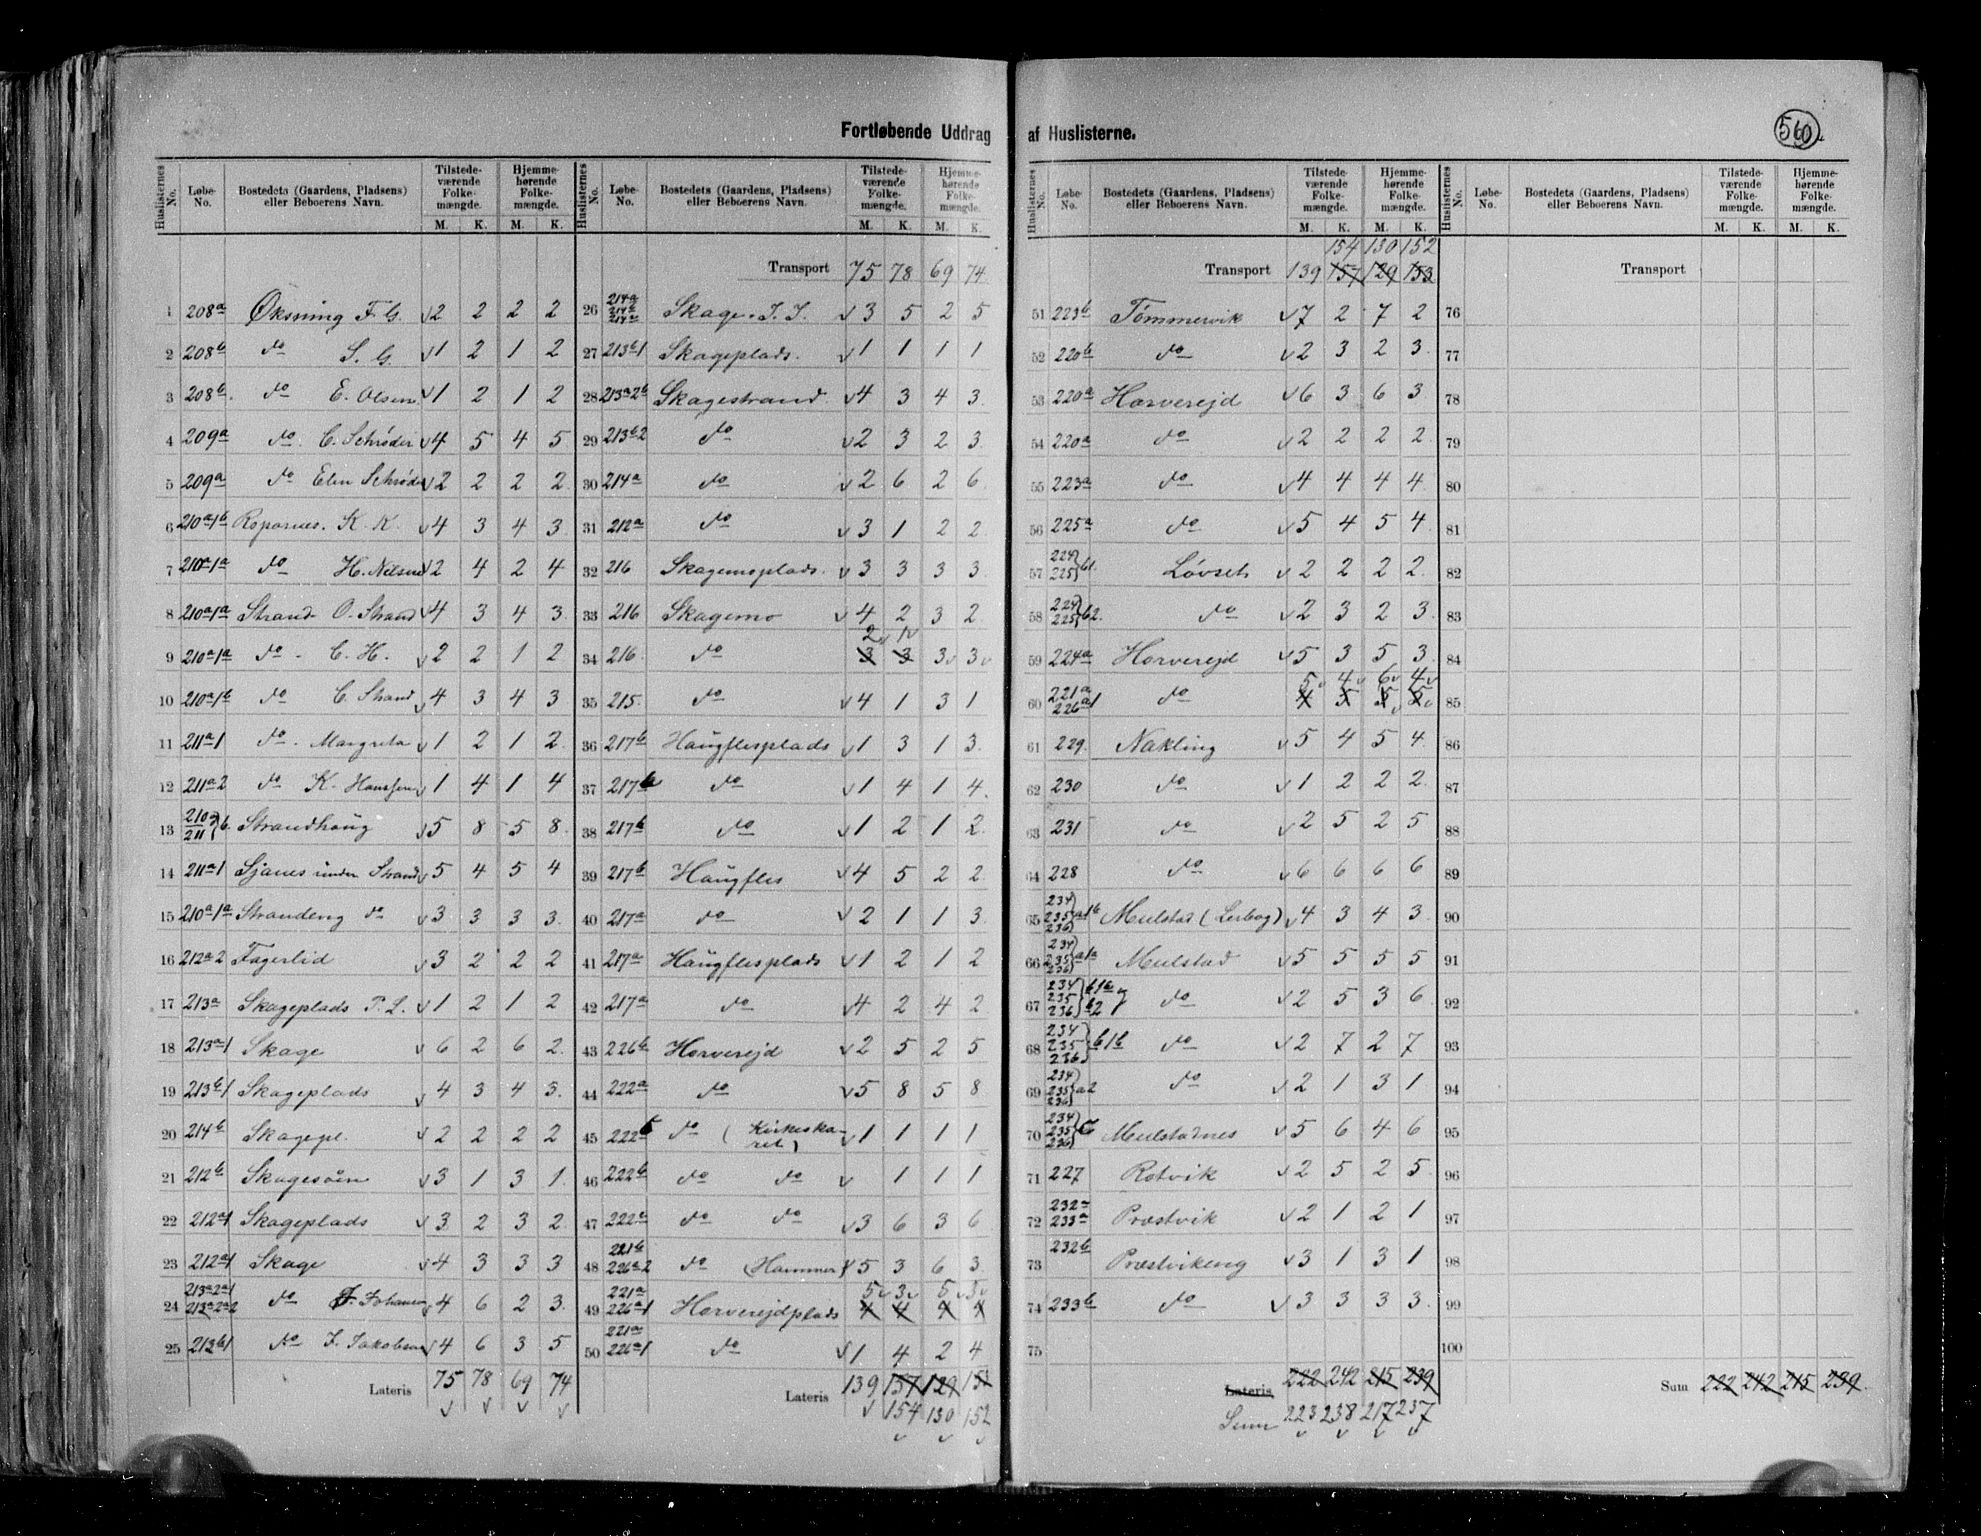 Fortløbende Uddrag af Huslisterne.
560
Huslisternes No. Løbe-No. Bostedets (Gaardens, Pladsens) eller Beboerens Navn. Tilstedeværende Folkemængde. M. K. Hjemmehørende Folkemængde. M. K.
1 208a Øksning F. G. 2 2 2 2
2 208b do S. G. 1 2 1 2
3 208b do E. Olsen 1 2 1 2
4 209a do C. Schrøder 4 5 4 5
5 209a do Elen Schrøder 2 2 2 2
6 210a1b Ropornes. K. K. 4 3 4 3
7 210a1a do H. Nilsen 2 4 2 4
8 210a1a Strand O. Strand 4 3 4 3
9 210a1a do C. H. 2 2 1 2
10 210a1b do C. Strand 4 3 4 3
11 211a1 do Margreta 1 2 1 2
12 211a2 do K. Hanssen 1 4 1 4
13 210 211 b. Strandhaug 5 8 5 8
14 211a1 Sjanes under Strand 5 4 5 4
15 210a1a Strandeng do 3 3 3 3
16 212a2 Fagerlid 3 2 2 2
17 213a Skageplads P. L. 1 2 1 2
18 213a1 Skage 6 2 6 2
19 213b1 Skageplads 4 3 4 3
20 214b Skagepl. 2 2 2 2
21 212b Skagesøen 3 1 3 1
22 212a1 Skageplads 3 2 3 2
23 212a1 Skage 4 3 3 3
24 213a2a1 213a2a2 do J. Johansen 4 6 2 3
25 213b1 do J. Jakobsen 4 6 3 5
Lateris 75 78 69 74
Huslisternes No. Løbe-No. Bostedets (Gaardens, Pladsens) eller Beboerens Navn. Tilstedeværende Folkemængde. M. K. Hjemmehørende Folkemængde. M. K.
Transport 75 78 69 74
26 214a 214b 214a Skage. J. J. 3 5 2 5
27 213b1 Skageplads. 1 1 1 1
28 213a2b Skagestrand 4 3 4 3
29 213b2 do 2 3 2 3
30 214a do 2 6 2 6
31 212a do 3 1 2 2
32 216 Skagemoplads. 3 3 3 3
33 216 Skagemo 4 2 3 2
2 1
34 216 do 3 3 3 3
35 215 do 4 1 3 1
36 217b Haugflesplads 1 3 1 3
37 217b do 1 4 1 4
38 217b do 1 2 1 2
39 217b Haugfles 4 5 2 2
40 217a do 2 1 1 3
41 217a Haugflesplads 1 2 1 2
42 217a do 4 2 4 2
43 226b Horverejd 2 5 2 5
44 222a do 5 8 5 8
45 222b do (Kirkeskaret) 1 1 1 1
46 222b do do 1 1 1
47 222a do do 3 6 3 6
48 221b 226a2 do (Hammer) 5 3 6 3
5 3 5 3
49 221a 226a1 Horverejdplads 4 4 4 4
50 221a 226a1 do 1 4 2 4
Lateris 139 157 129 153
154 130 152
Huslisternes No. Løbe-No. Bostedets (Gaardens, Pladsens) eller Beboerens Navn. Tilstedeværende Folkemængde. M. K. Hjemmehørende Folkemængde. M. K.
154 130 152
Transport 139 157 129 153
51 223b Tømmervik 7 2 7 2
52 220b do 2 3 2 3
53 220a Horverejd 6 3 6 3
54 220a do 2 2 2 2
55 223a do 4 4 4 4
56 225a do 5 4 5 4
57 224 225 b1. Løvset 2 2 2 2
58 224 225 b2. do 2 3 2 3
59 224a Horverejd 5 3 5 3
5 4 6 4
60 221a 226a1 do 4 5 5 5
61 229. Nakling 5 4 5 4
62 230 do 1 2 2 2
63 231 do 2 5 2 5
64 228 do 6 6 6 6
65 234 235 236 a1b Mulstad (Lerbog) 4 3 4 3
66 234 235 236 a1a Mulstad 5 5 5 5
67 234 235 236 b1b b2 do 2 5 3 6
68 234 235 236 b1b do 2 7 2 7
69 234 235 236 a2 do 2 1 3 1
70 234 235 236 C Mulstadnes 5 6 4 6
71 227 Rotvik 2 5 2 5
72 232a 233a Præstvik 2 1 2 1
73 232b Præstvikeng 3 1 3 1
74 233b do 3 3 3 3
75
Lateris 222 242 215 239
Sum 223 238 217 237
Huslisternes No. Løbe-No. Bostedets (Gaardens, Pladsens) eller Beboerens Navn. Tilstedeværende Folkemængde. M. K. Hjemmehørende Folkemængde. M. K.
Transport
76
77
78
79
80
81
82
83
84
85
86
87
88
89
90
91
92
93
94
95
96
97
98
99
100
Sum 222 242 215 239.